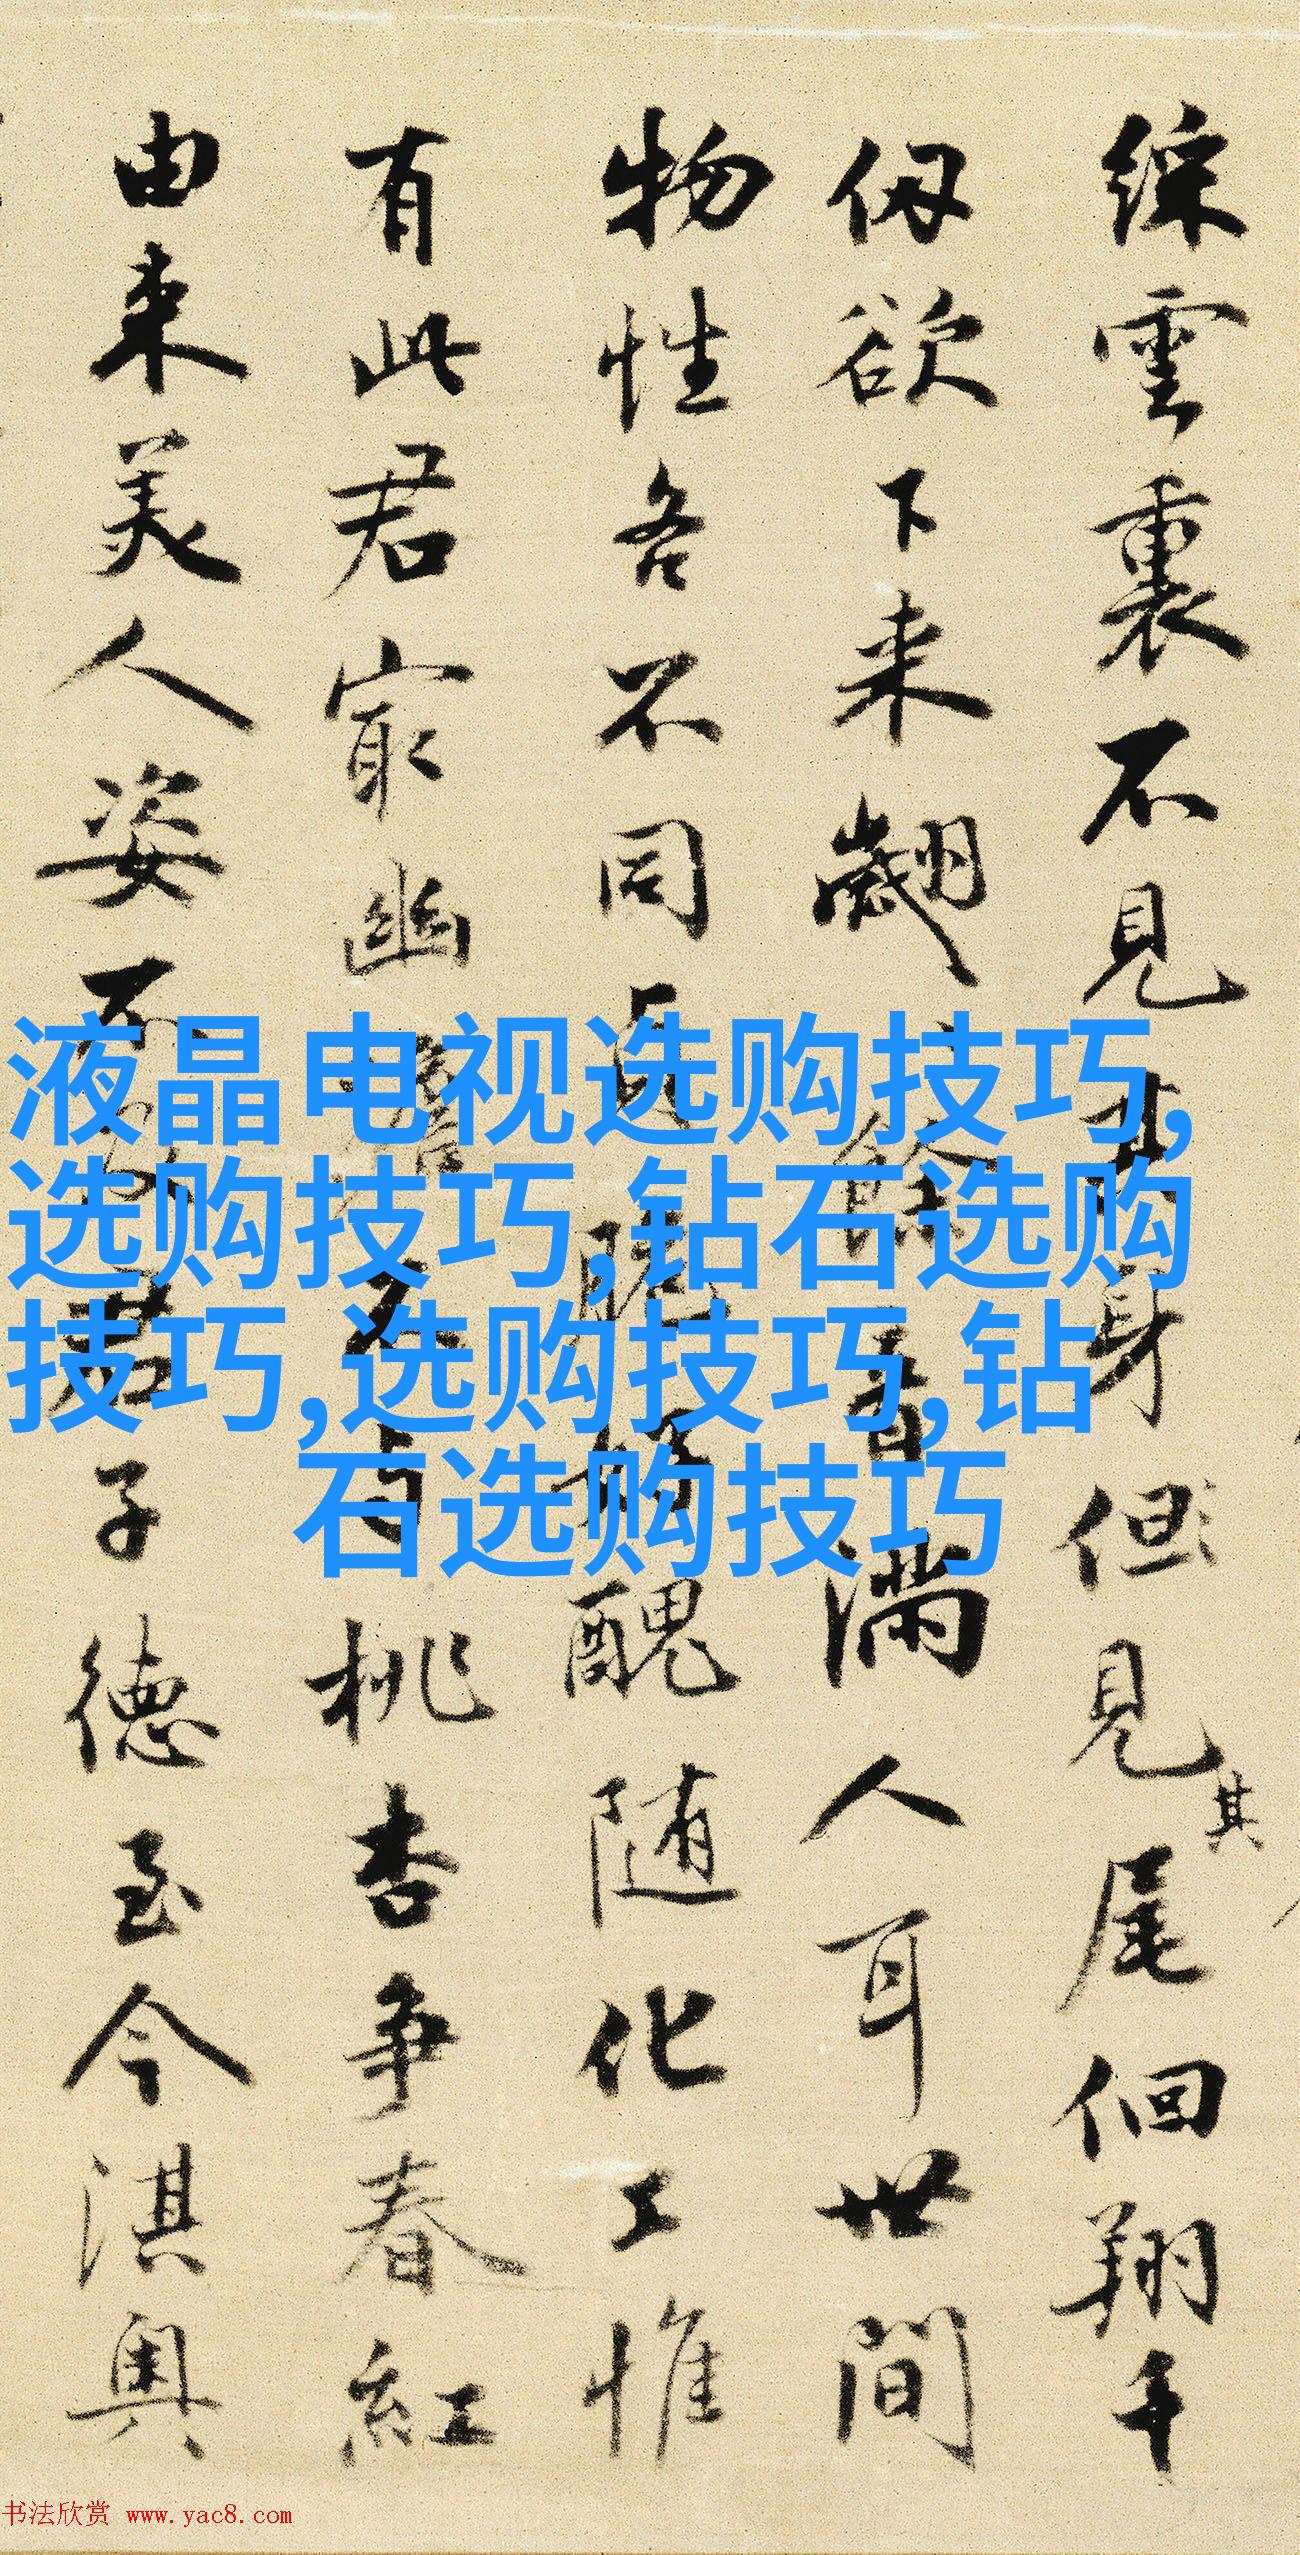 綵雲裏不見其身但見其尾佪翔千
仭欲下来翽餘音满人耳世間
物性各不同随化工惟
醜
有此君寂幽桃杏争春紅
由来美人姿不君子德至今淇奥
液晶电视选购技巧,
选购技巧,钻石选购
技巧,选购技巧,钻
石选购技巧
书法欣赏 www.yac8.com